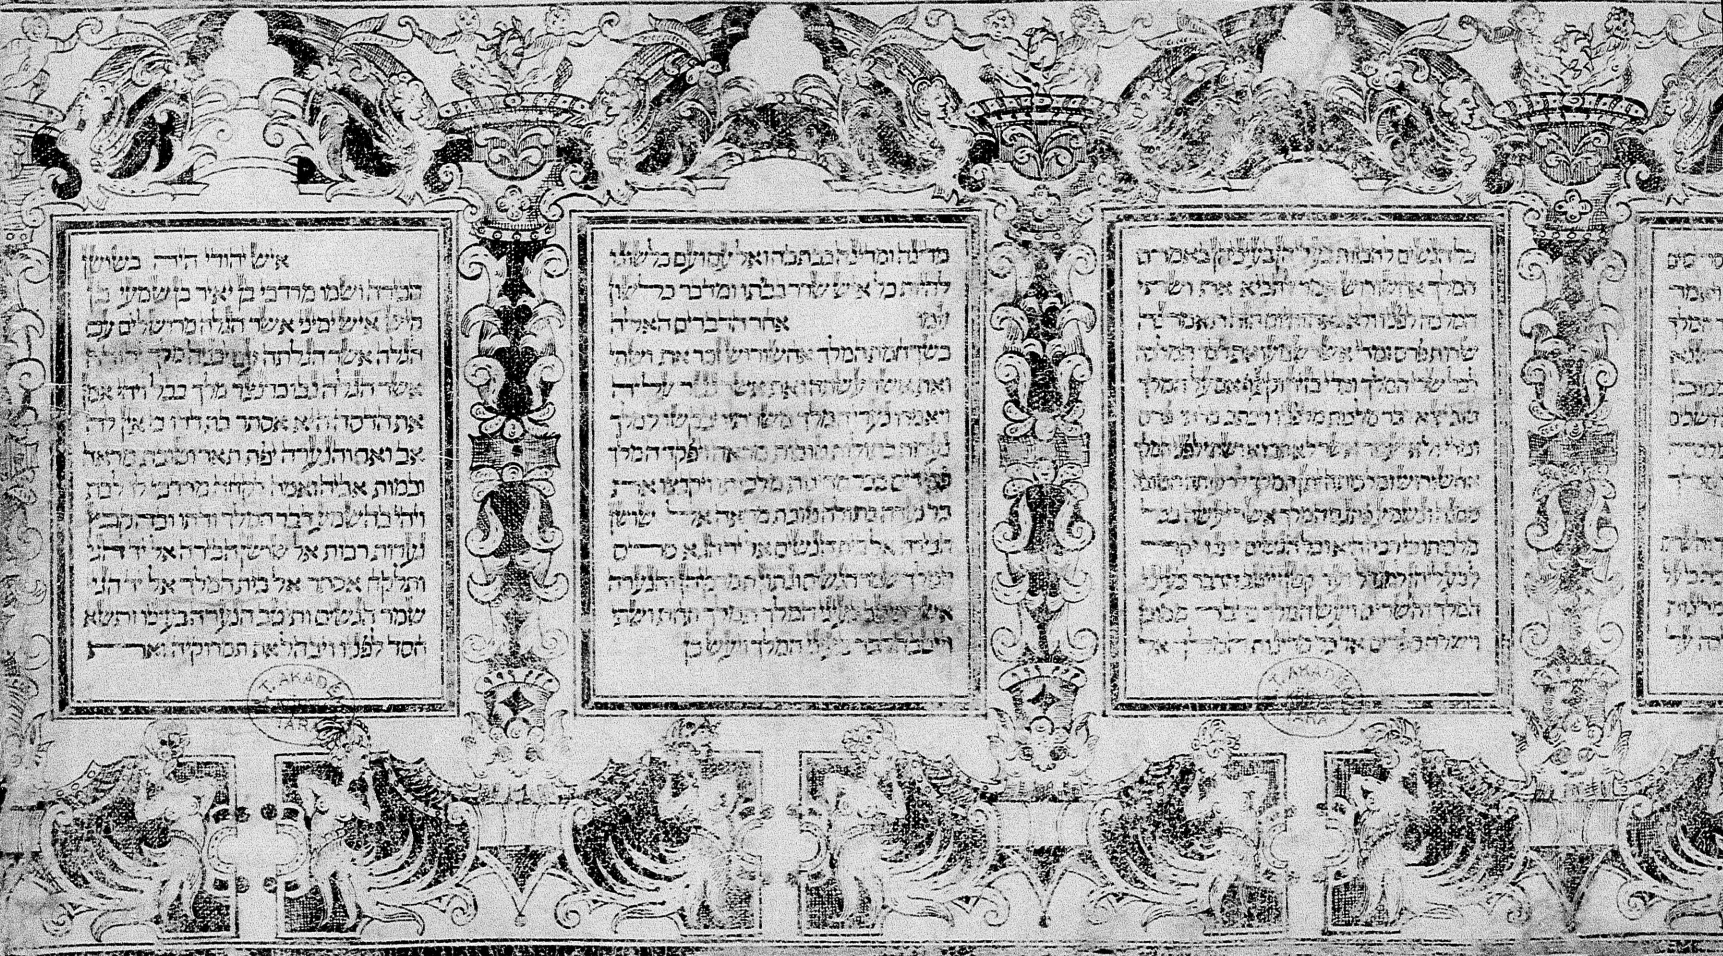 כל הנשים להבזות בעליהן בעיניהן באמרם
המלך אחשורוש אמר להביא את ושתי
המלכה לפניו ולא באה והיום הזה תאמרנה
שרות פרס ומדי אשר שמעו את דבר המלכה
לכל שרי המלך וכדי בזיון וקצף אם על המלך
טוב יצא דבר מלכות מלפניו ויכתב בדתי פרס
ומדי ולא יעבור אשר לא תבוא ושתי לפני המלך
אחשורוש ומלכותה יתן המלך לרעותה הטובה
ממנה ונשמע פתגם המלך אשר יעשה בכל
מלכותו כי רבה היא וכל הנשים יתנו יקר
לבעליהן למגדול ועד קטן וייטב הדבר בעיני
המלך והשרים ויעש המלך כדבר ממוכן
וישלח ספרים אל כל מדינות המלך אל
מדינה ומדינה ככתבה ואל עם ועם כלשונו
להיות כל איש שרר בביתו ומדבר כלשון
עמו אחר הדברים האלה
כשך חמת המלך אחשורוש זכר את ושתי
ואת אשר עשתה ואת אשר נגזר עליה
ויאמרו נערי המלך משרתיו יבקשו למלך
נערות בתולות טובות מראה ויפקד המלך
פקידים בכל מדינות מלכותו ויקבצו את
כל נערה בתולה טובת מראה אל שושן
הבירה אל בית הנשים אל יד הגא סריס
המלך שמר הנשים ונתון תמרקיהן והנערה
אשר תיטב בעיני המלך תמלך תחת ושתי
וייטב הדבר בעיני המלך ויעש כן
איש יהודי היה בשושן
הבירה ושמו מרדכי בן יאיר בן שמעי בן
קיש איש ימיני אשר הגלה מירושלים עם
הגלה אשר הגלתה עם יכניה מלך יהודה
אשר הגלה נבוכדנצר מלך בבל ויהי אמן
את הדסה היא אסתר בת דדו כי אין לה
אב ואם והנערה יפת תאר וטובת מראה
ובמות אביה ואמה לקחה מרדכי לו לבת
ויהי בהשמע דבר המלך ודתו ובהקבץ
נערות רבות אל שושן הבירה אל יד הגי
ותלקח אסתר אל בית המלך אל יד הגי
שמר הנשים ותיטב הנערה בעיניו ותשא
חסד לפניו ויבהל את תמרוקיה ואת
T. AKADE